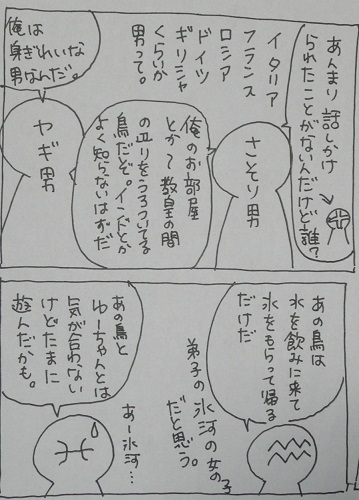 あんまり話しかけ
られたことが
ないんだけど誰?
イタリア
フランス
ロシア
ドイツ
ギリシャ
くらいか
男って。
さそり男
俺のお部屋
とか〜教皇の間
の辺りをうろついてる
鳥だぞ。インドとか
よく知らないはずだ
俺は
身ぎれいな
男なんだ。
ヤギ男
あの鳥は
水を飲みに来て
氷をもらって帰る
だけだ
弟子の氷河の女の子
だと思う。
あの鳥と
ゆーちゃんとは
気が合わない
けどたまに
遊んだかも。
あー氷河…